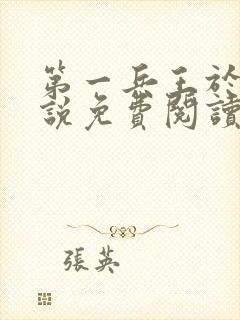 第一兵王於
說免費閱讀
張英